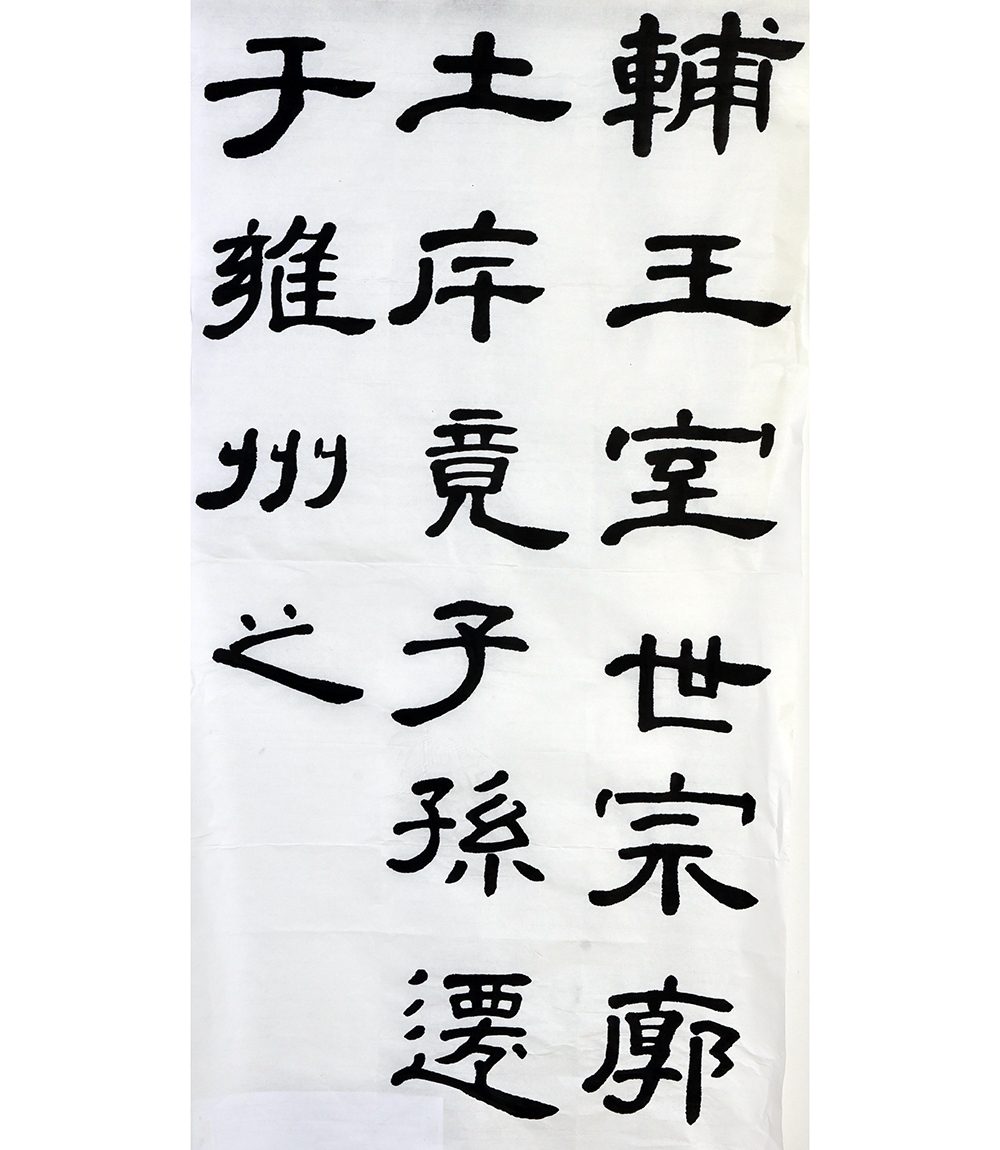 輔王室世宗廓
土庠竟子孫遷
于雍州之